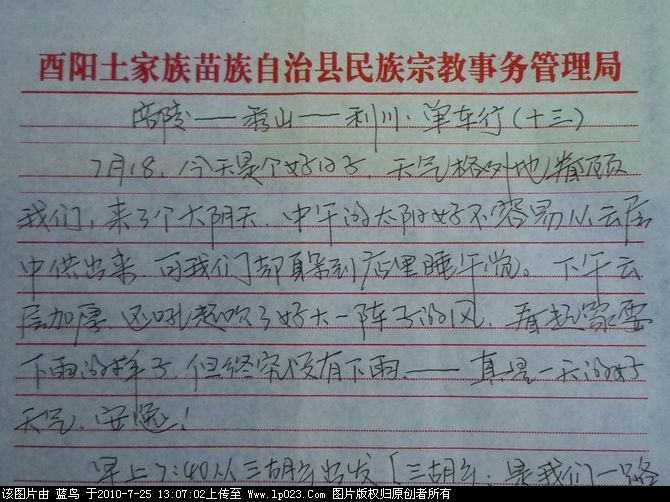 酉阳土家族苗族自治县民族宗教事务管理局
涪陵——秀山——利川·单车行(十三)
7月18,今天是个好日子,天气格外地眷顾
我们,来了个大阴天.中午的太阳好不容易从云层
中供出来.可我们却躲到店里睡午觉。下午云
层加厚.还吼起吹了好大一阵子的风.看起家要
下雨的样子.但终究没有下雨.——真是一天的好
天气.安逸!
早上7:40从三胡乡出发〔三胡乡,是我们一路
该图片由 蓝鸟 于2010-7-25 13:07:02上传至 Www.lp023.Com 图片版权归原创者所有